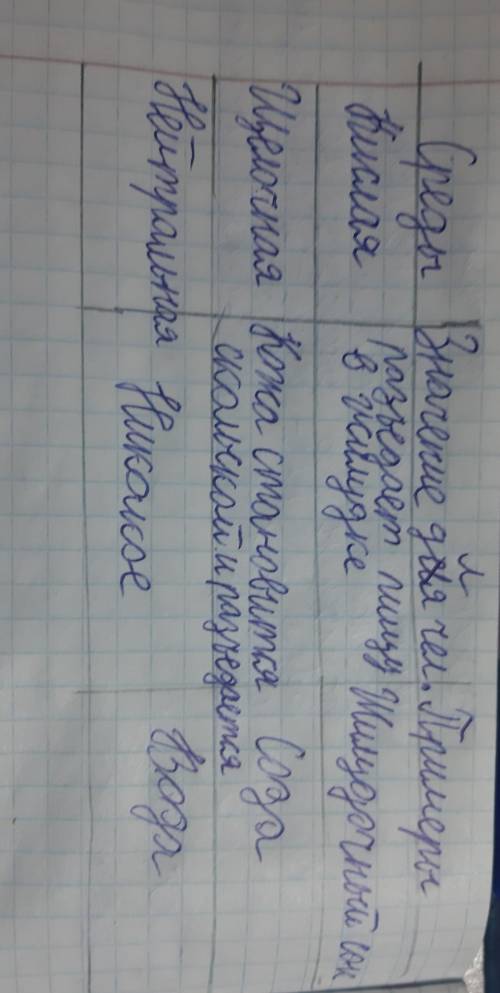 Среды Значение для чел. Примеры
Кислая разъедает пищу Жилудочный сок
в желудке
Щелочная Кожа становится Сода
скользкой и разъедается
Нейтральная Никакое Вода